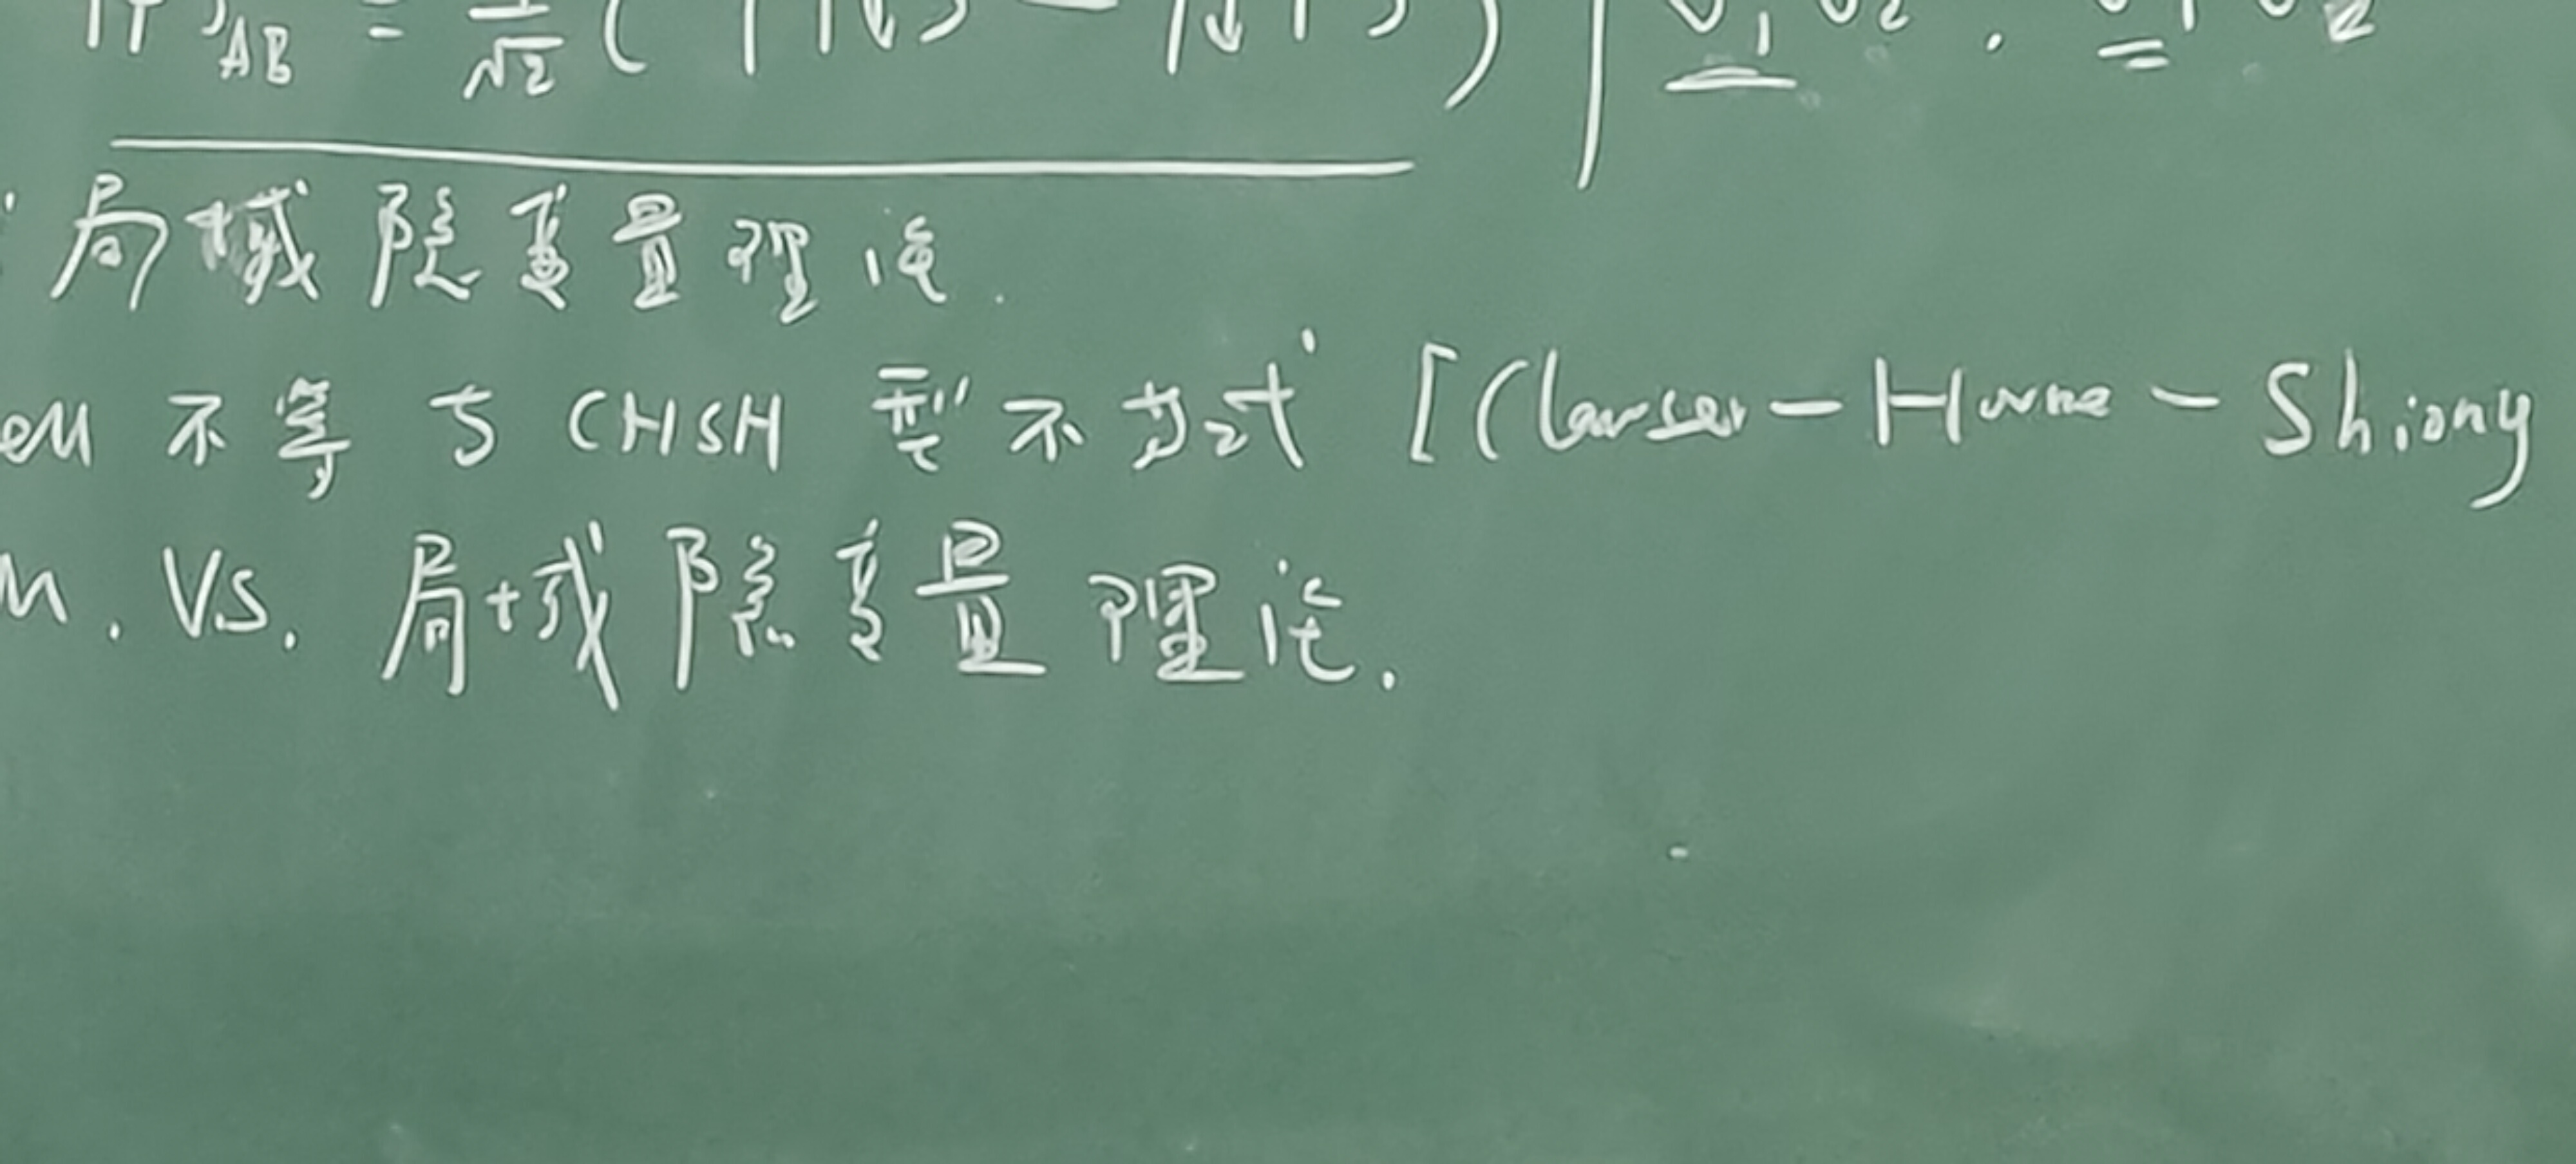 AB = 1/√2 ( |↑↓⟩ - |↓↑⟩ )
局域隐变量理论.
ell 不等 CHSH 型不等式 [Clauser - Horne - Shiony
M. VS. 局域隐变量理论.